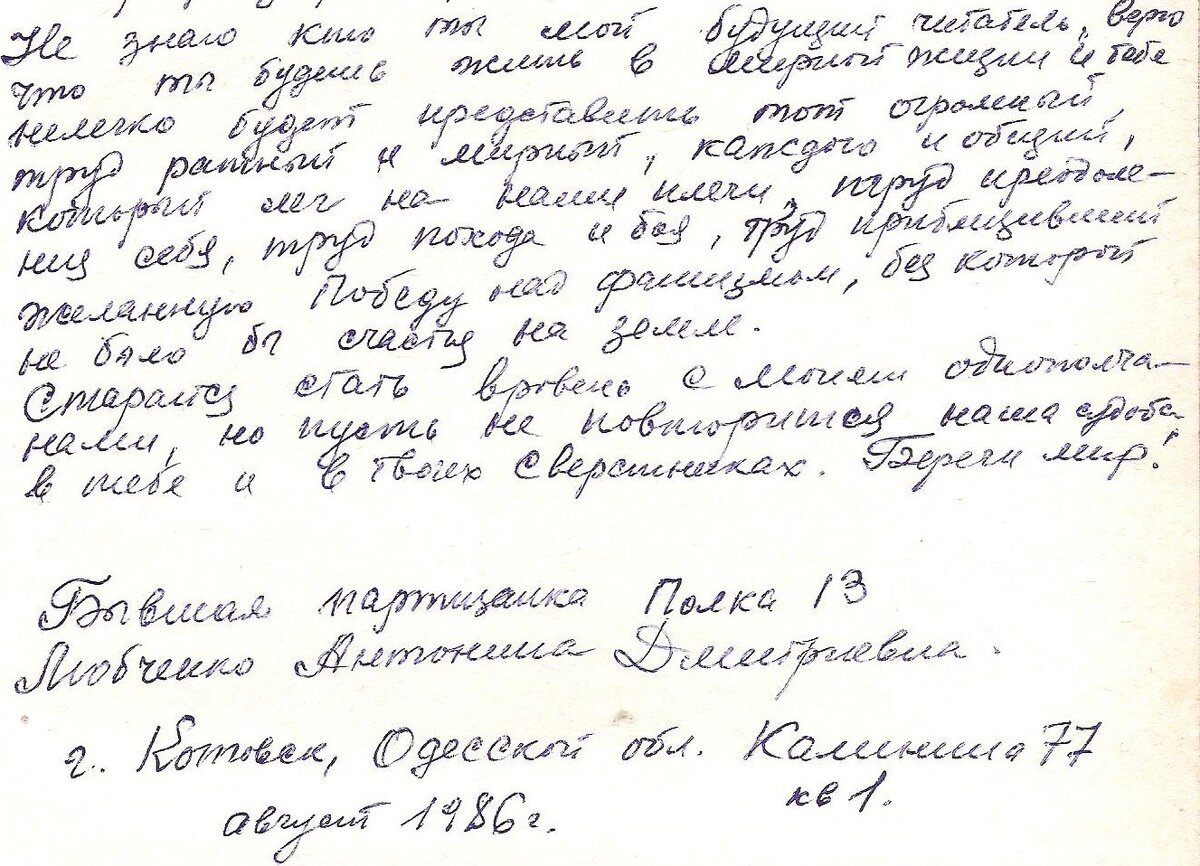 Не знаю кто ты мой будущий читатель, верю
что ты будешь жить в мирной жизни и тебе
нелегко будет представить тот огромный,
труд ратный и мирный, каждого и общий,
который лег на наши плечи, труд преодоле-
ния себя, труд похода и боя, труд приблизивший
желанную Победу над фашизмом, без которой
не было бы счастья на земле.
Старайся стать вровень с моими однополча-
нами, но пусть не повторится наша судьба
в тебе и в твоих сверстниках. Береги мир!
Бывшая партизанка Полка 13
Любченко Антонина Дмитриевна.
г. Котовск, Одесской обл. Калинина 77
кв 1.
август 1986 г.